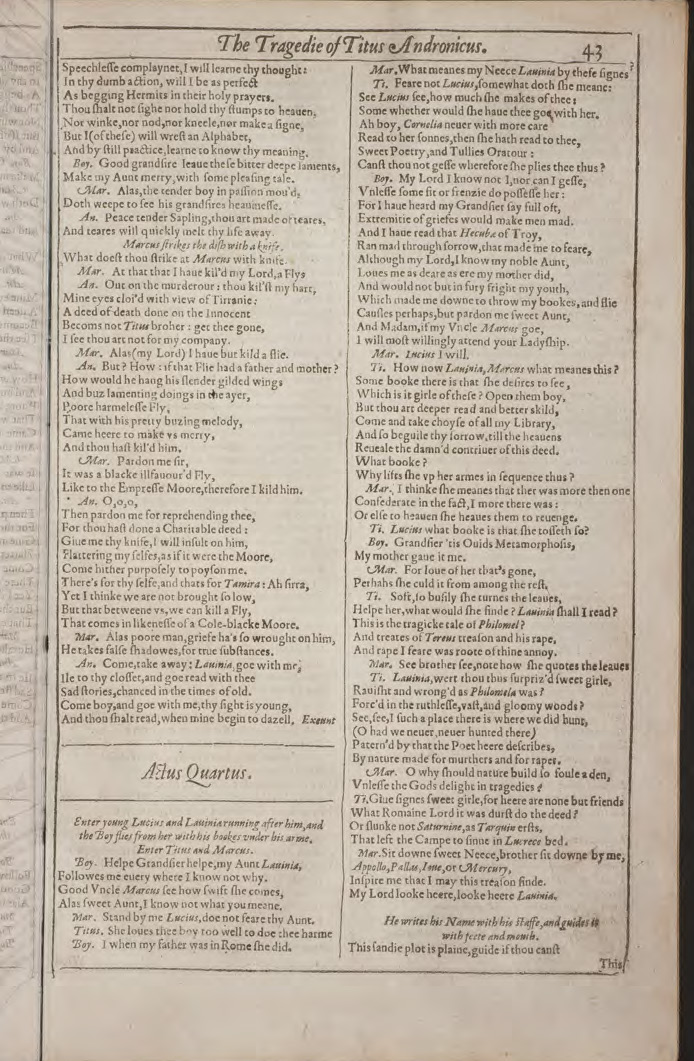 The Tragedie of Titus Andronicus. 43
Speechlesse complaynet, I will learne thy thought:
In thy dumb action, will I be as perfect
As begging Hermits in their holy prayers.
Thou shalt not sighe nor hold thy stumps to heauen,
Nor winke, nor nod, nor kneele, nor make a signe,
But I (of these) will wrest an Alphabet,
And by still practice, learne to know thy meaning.
Boy. Good grandsire leaue these bitter deepe laments,
Make my Aunt merry, with some pleasing tale.
Mar. Alas, the tender boy in passion mou'd,
Doth weepe to see his grandsires heauinesse.
An. Peace tender Sapling, thou art made of teares,
And teares will quickly melt thy life away.
Marcus strikes the dish with a knife.
What doest thou strike at Marcus with knife.
Mar. At that that I haue kil'd my Lord, a Flys
An. Out on the murderour: thou kil'st my hart,
Mine eyes cloi'd with view of Tirranie:
A deed of death done on the Innocent
Becoms not Titus broher: get thee gone,
I see thou art not for my company.
Mar. Alas (my Lord) I haue but kild a flie.
An. But? How: if that Flie had a father and mother?
How would he hang his slender gilded wings
And buz lamenting doings in the ayer,
Poore harmelesse Fly,
That with his pretty buzing melody,
Came heere to make vs merry,
And thou hast kil'd him.
Mar. Pardon me sir,
It was a blacke illfauour'd Fly,
Like to the Empresse Moore, therefore I kild him.
An. O, o, o,
Then pardon me for reprehending thee,
For thou hast done a Charitable deed:
Giue me thy knife, I will insult on him,
Flattering my selfes, as if it were the Moore,
Come hither purposely to poyson me.
There's for thy selfe, and thats for Tamira: Ah sirra,
Yet I thinke we are not brought so low,
But that betweene vs, we can kill a Fly,
That comes in likenesse of a Cole-blacke Moore.
Mar. Alas poore man, griefe ha's so wrought on him,
He takes false shadowes, for true substances.
An. Come, take away: Lauinia, goe with me,
Ile to thy closset, and goe read with thee
Sad stories, chanced in the times of old.
Come boy, and goe with me, thy sight is young,
And thou shalt read, when mine begin to dazell. Exeunt
Actus Quartus.
Enter young Lucius and Lauinia running after him, and
the Boy flies from her with his bookes vnder his arme.
Enter Titus and Marcus.
Boy. Helpe Grandsier helpe, my Aunt Lauinia,
Followes me euery where I know not why.
Good Vncle Marcus see how swift she comes,
Alas sweet Aunt, I know not what you meane.
Mar. Stand by me Lucius, doe not feare thy Aunt.
Titus. She loues thee boy too well to doe thee harme
Boy. I when my father was in Rome she did.
Mar. What meanes my Neece Lauinia by these signes?
Ti. Feare not Lucius, somewhat doth she meane:
See Lucius see, how much she makes of thee:
Some whether would she haue thee goe with her.
Ah boy, Cornelia neuer with more care
Read to her sonnes, then she hath read to thee,
Sweet Poetry, and Tullies Oratour:
Canst thou not gesse wherefore she plies thee thus?
Boy. My Lord I know not I, nor can I gesse,
Vnlesse some fit or frenzie do possesse her:
For I haue heard my Grandsier say full oft,
Extremitie of griefes would make men mad.
And I haue read that Hecuba of Troy,
Ran mad through sorrow, that made me to feare,
Although my Lord, I know my noble Aunt,
Loues me as deare as ere my mother did,
And would not but in fury fright my youth,
Which made me downe to throw my bookes, and flie
Causles perhaps, but pardon me sweet Aunt,
And Madam, if my Vncle Marcus goe,
I will most willingly attend your Ladyship.
Mar. Lucius I will.
Ti. How now Lauinia, Marcus what meanes this?
Some booke there is that she desires to see,
Which is it girle of these? Open them boy,
But thou art deeper read and better skild,
Come and take choyse of all my Library,
And so beguile thy sorrow, till the heauens
Reueale the damn'd contriuer of this deed.
What booke?
Why lifts she vp her armes in sequence thus?
Mar. I thinke she meanes that ther was more then one
Confederate in the fact, I more there was:
Or else to heauen she heaues them to reuenge.
Ti. Lucius what booke is that she tosseth so?
Boy. Grandsier 'tis Ouids Metamorphosis,
My mother gaue it me.
Mar. For loue of her that's gone,
Perhahs she culd it from among the rest.
Ti. Soft, so busily she turnes the leaues,
Helpe her, what would she finde? Lauinia shall I read?
This is the tragicke tale of Philomel?
And treates of Tereus treason and his rape,
And rape I feare was roote of thine annoy.
Mar. See brother see, note how she quotes the leaues
Ti. Lauinia, wert thou thus surpriz'd sweet girle,
Rauisht and wrong'd as Philomela was?
Forc'd in the ruthlesse, vast, and gloomy woods?
See, see, I such a place there is where we did hunt,
(O had we neuer, neuer hunted there)
Patern'd by that the Poet heere describes,
By nature made for murthers and for rapes.
Mar. O why should nature build so foule a den,
Vnlesse the Gods delight in tragedies?
Ti. Giue signes sweet girle, for heere are none but friends
What Romaine Lord it was durst do the deed?
Or slunke not Saturnine, as Tarquin ersts,
That left the Campe to sinne in Lucrece bed.
Mar. Sit downe sweet Neece, brother sit downe by me,
Appollo, Pallas, Ioue, or Mercury,
Inspire me that I may this treason finde.
My Lord looke heere, looke heere Lauinia.
He writes his Name with his Staffe, and guides it
with feete and mouth.
This sandie plot is plaine, guide if thou canst
This